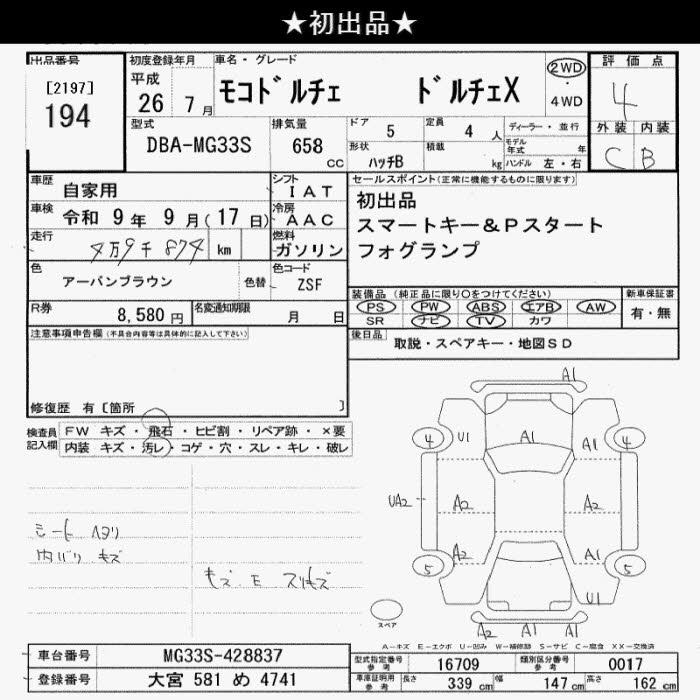 ★初出品★
出品番号
[2197]
194
初度登録年月
平成
26 7月
車名・グレード
モコドルチェ ドルチェX
2WD
・
4WD
評価点
4
外装 内装
C B
型式
DBA-MG33S
排気量
658
cc
ドア
5
定員
4 人
形状
ハッチB
積載
kg
ディーラー・並行
モデル
年式 年
ハンドル 左・右
車歴
自家用
シフト
IAT
車検
令和 9年 9月(17日)
冷房
AAC
走行
4万9千874 km
燃料
ガソリン
色
アーバンブラウン
色替
色コード
ZSF
R券
8,580 円
名変通知期限
月 日
セールスポイント(正常に機能するものに限ります)
初出品
スマートキー&Pスタート
フォグランプ
装備品 (純正品に限り○をつけてください)
PS PW ABS エアB AW
SR ナビ TV カワ
新車保証書
有・無
後日品
取説・スペアキー・地図SD
注意事項申告欄(不具合内容等は具体的に記入して下さい)
修復歴 有〔箇所 〕
検査員
記入欄
FW キズ・飛石・ヒビ割・リペア跡・×要
内装 キズ・汚レ・コゲ・穴・スレ・キレ・破レ
シート ヘタリ
内バリ キズ
キズ E スリキズ
A1
4
U1
A1
A1
4
UA2
A2
A2
A2
A1
5
5
U1
A2 A1
スペア
A−キズ E−エクボ U−凹み W−補修跡 S−サビ C−腐食 XX−交換済
車台番号
MG33S-428837
登録番号
大宮 581 め 4741
型式指定番号
参考
16709
類別区分番号
参考
0017
車庫証明用
参考
長さ
339 cm
幅
147 cm
高さ
162 cm